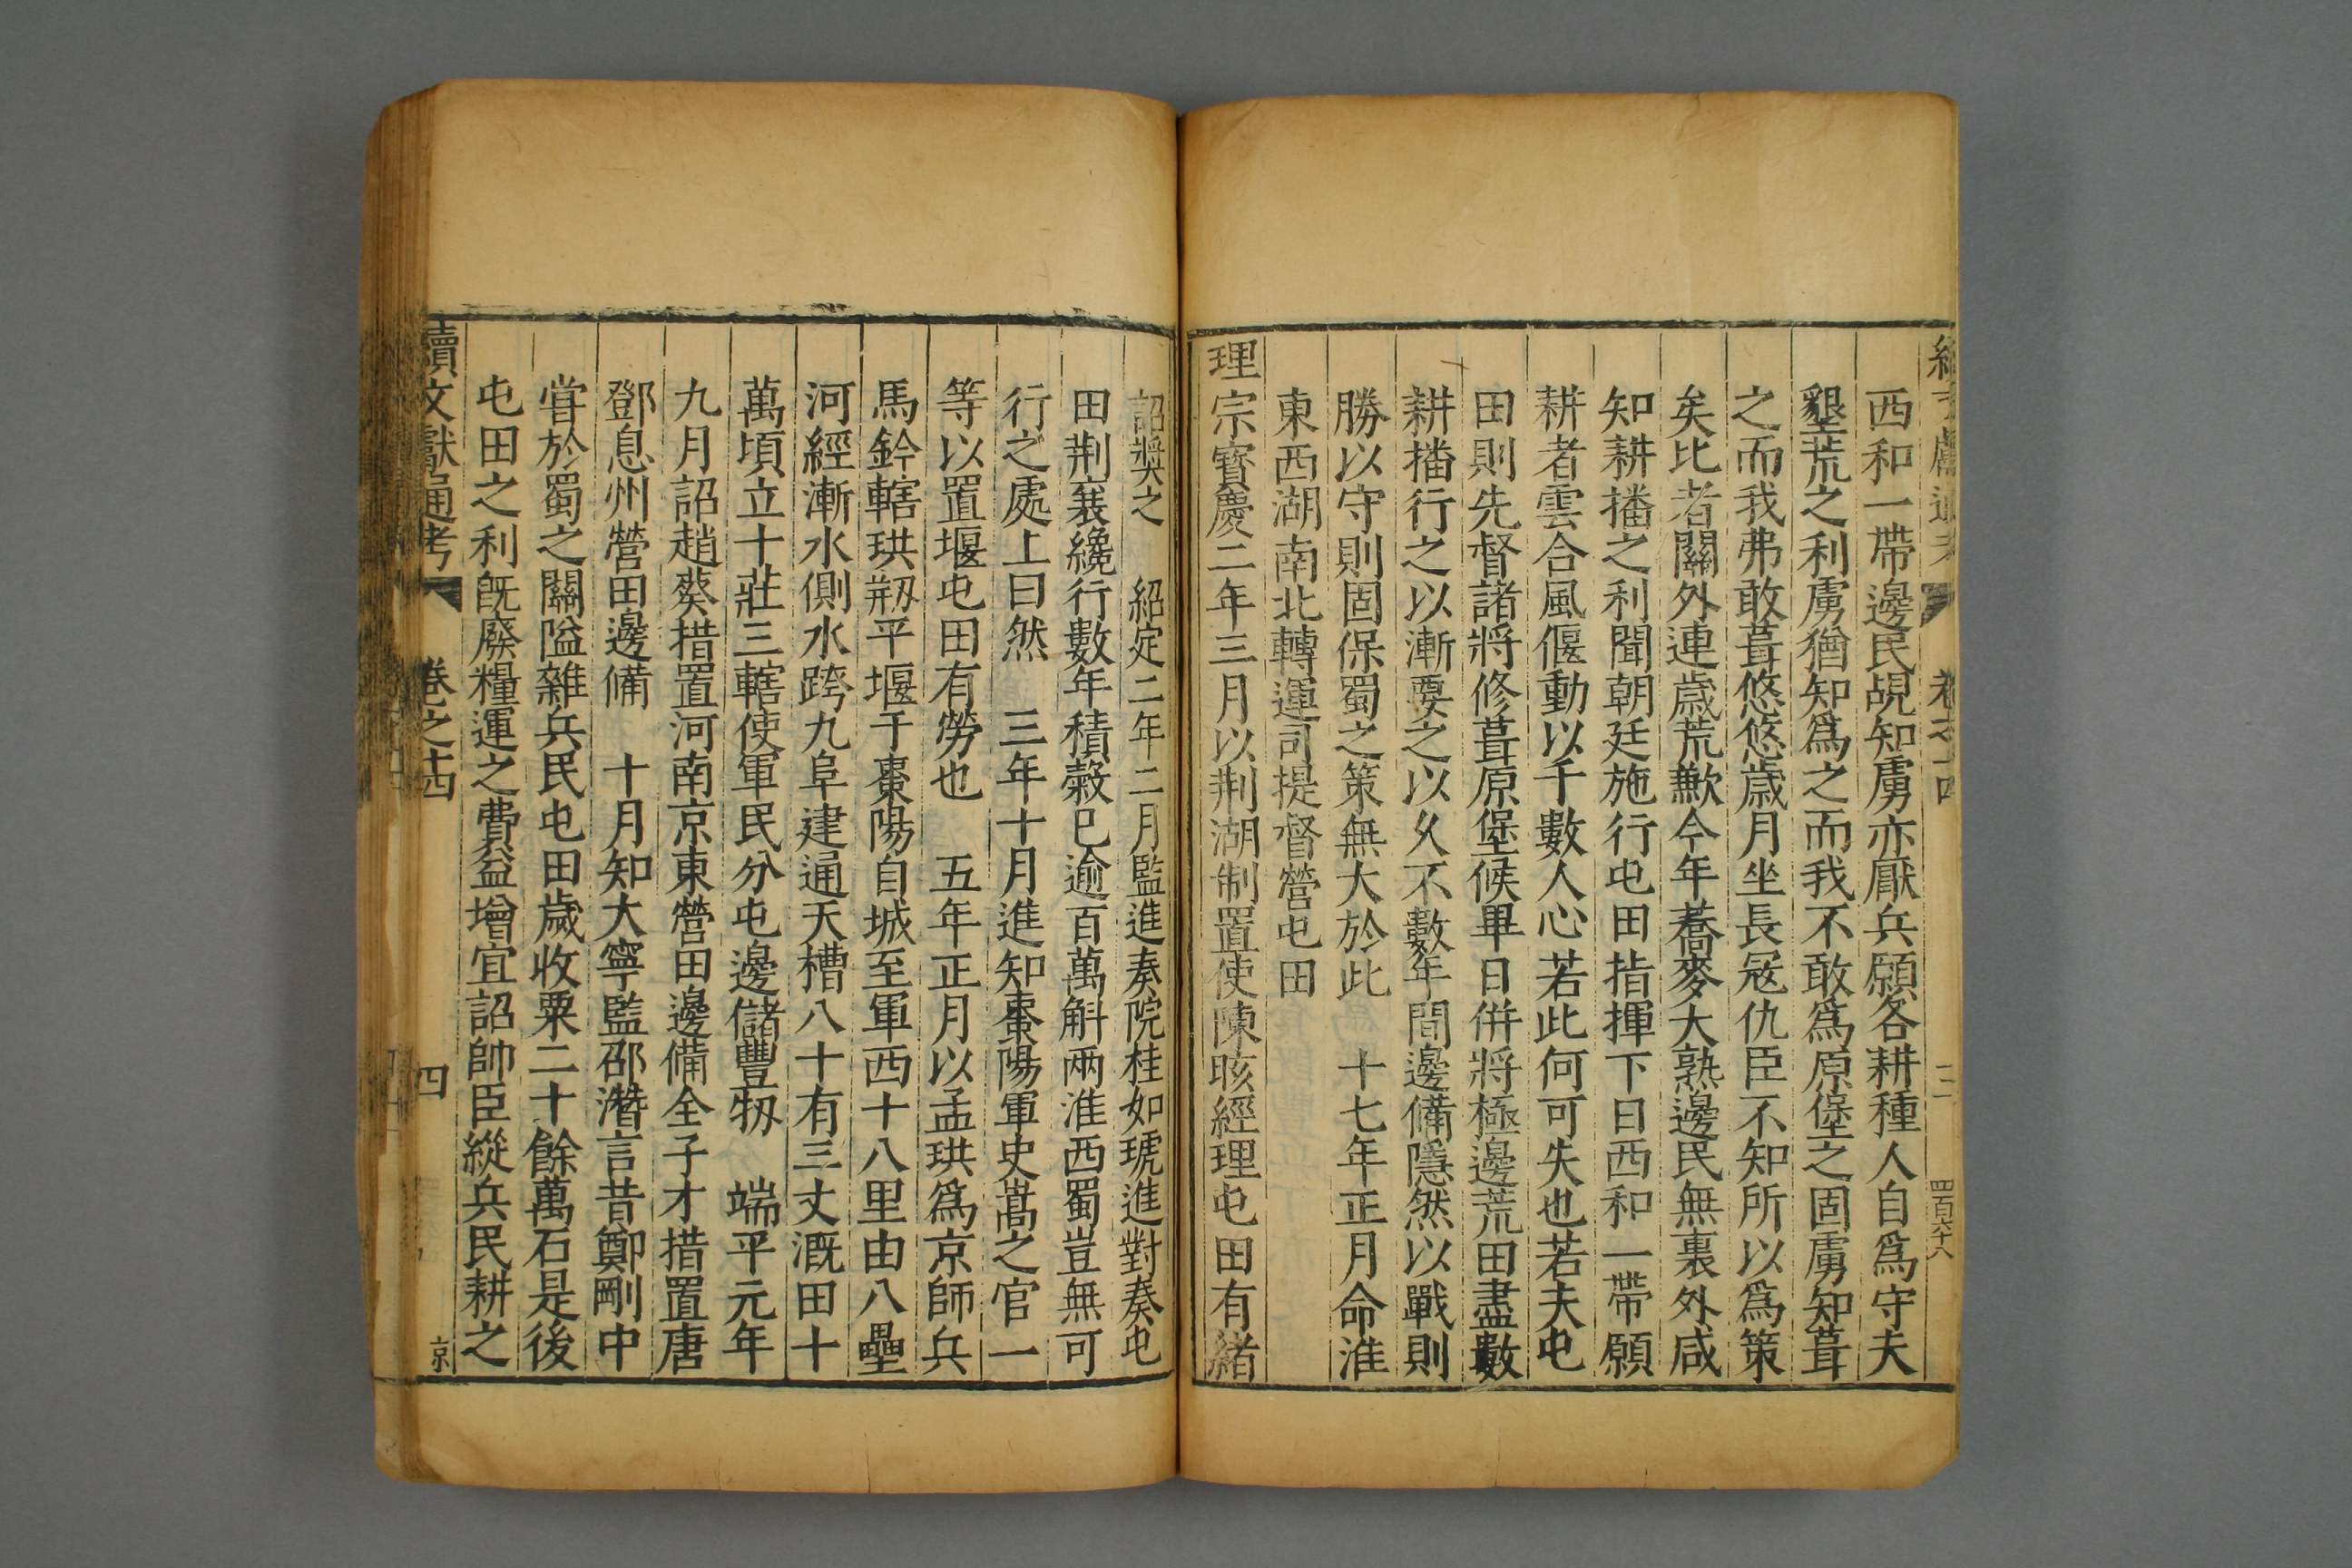 卷之十四
三
四百六十八
西和一帶邊民覘知虜亦厭兵願各耕種人自爲守夫
墾荒之利虜猶知爲之而我不敢爲原堡之固虜知葺
之而我弗敢葺悠悠歲月坐長冦仇臣不知所以爲策
矣比者關外連歲荒歉今年蕎麥大熟邊民無裏外咸
知耕播之利聞朝廷施行屯田指揮下日西和一帶願
耕者雲合風偃動以千數人心若此何可失也若夫屯
田則先督諸將修葺原堡候畢日併將極邊荒田盡數
耕播行之以漸要之以久不數年間邊備隱然以戰則
勝以守則固保蜀之策無大於此　十七年正月命淮
東西湖南北轉運司提督營屯田
理宗寳慶二年三月以荆湖制置使陳晐經理屯田有緒
詔奬之　紹定二年二月監進奏院桂如琥進對奏屯
田荆襄纔行數年積榖巳逾百萬斛兩淮西蜀豈無可
行之處上曰然　三年十月進知棗陽軍史嵩之官一
等以置堰屯田有勞也　五年正月以孟珙爲京師兵
馬鈐轄珙刱平堰于棗陽自城至軍西十八里由八壘
河經漸水側水跨九阜建通天槽八十有三丈溉田十
萬頃立十莊三轄使軍民分屯邊儲豐牣　端平元年
九月詔趙葵措置河南京東營田邊備全子才措置唐
鄧息州營田邊備　十月知大寧監邵潛言昔鄭剛中
甞於蜀之關隘雜兵民屯田歲收粟二十餘萬石是後
屯田之利旣廢糧運之費益增宜詔帥臣縱兵民耕之
續文獻通考
卷之十四
四
京